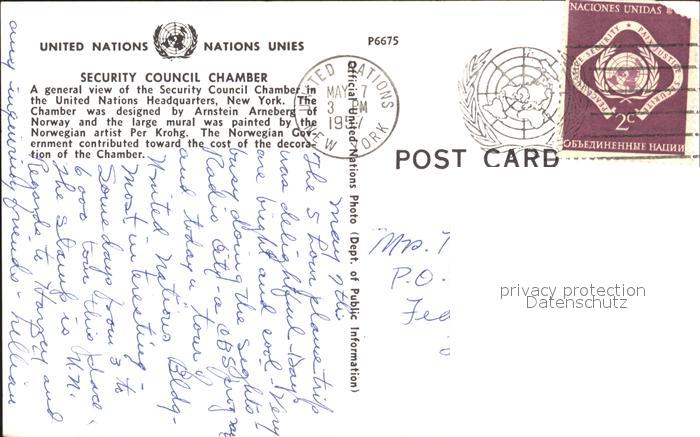 UNITED NATIONS NATIONS UNIES
P6675
SECURITY COUNCIL CHAMBER
A general view of the Security Council Chamber in
the United Nations Headquarters, New York. The
Chamber was designed by Arnstein Arneberg of
Norway and the large mural was painted by the
Norwegian artist Per Krohg. The Norwegian Gov-
ernment contributed toward the cost of the decora-
tion of the Chamber.
UNITED NATIONS
MAY 7
3 PM
195
NEW YORK
NACIONES UNIDAS
2c
ОБЪЕДИНЕННЫЕ НАЦИИ
POST CARD
Official United Nations Photo (Dept. of Public Information)
May 7th
The 5 hour plane trip
was delightful - Days
are bright and cool - Very
busy doing the sights
Radio City - a CBS program
and today a tour of
United Nations Bldg -
most interesting -
Some days from 3 to
6000 tour this place.
The stamp is U.N.
Regards to Harvey and
any inquiring friends - Lillian
Mrs.
P.O.
privacy protection
Datenschutz